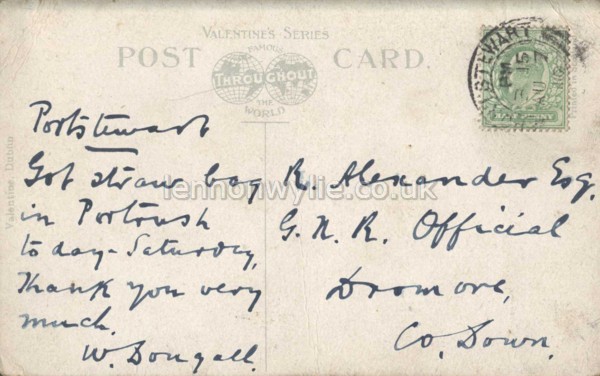 VALENTINE'S SERIES
POST CARD.
FAMOUS
THROUGHOUT
THE
WORLD
Valentine Dublin
Portstewart
Got straw bag
in Portrush
to day - Saturday,
Thank you very
much.
W. Dougall.
R. Alexander Esq.
G. N. R. Official
Dromore,
Co, Down.
lennonwylie.co.uk
STEWART
PM 15